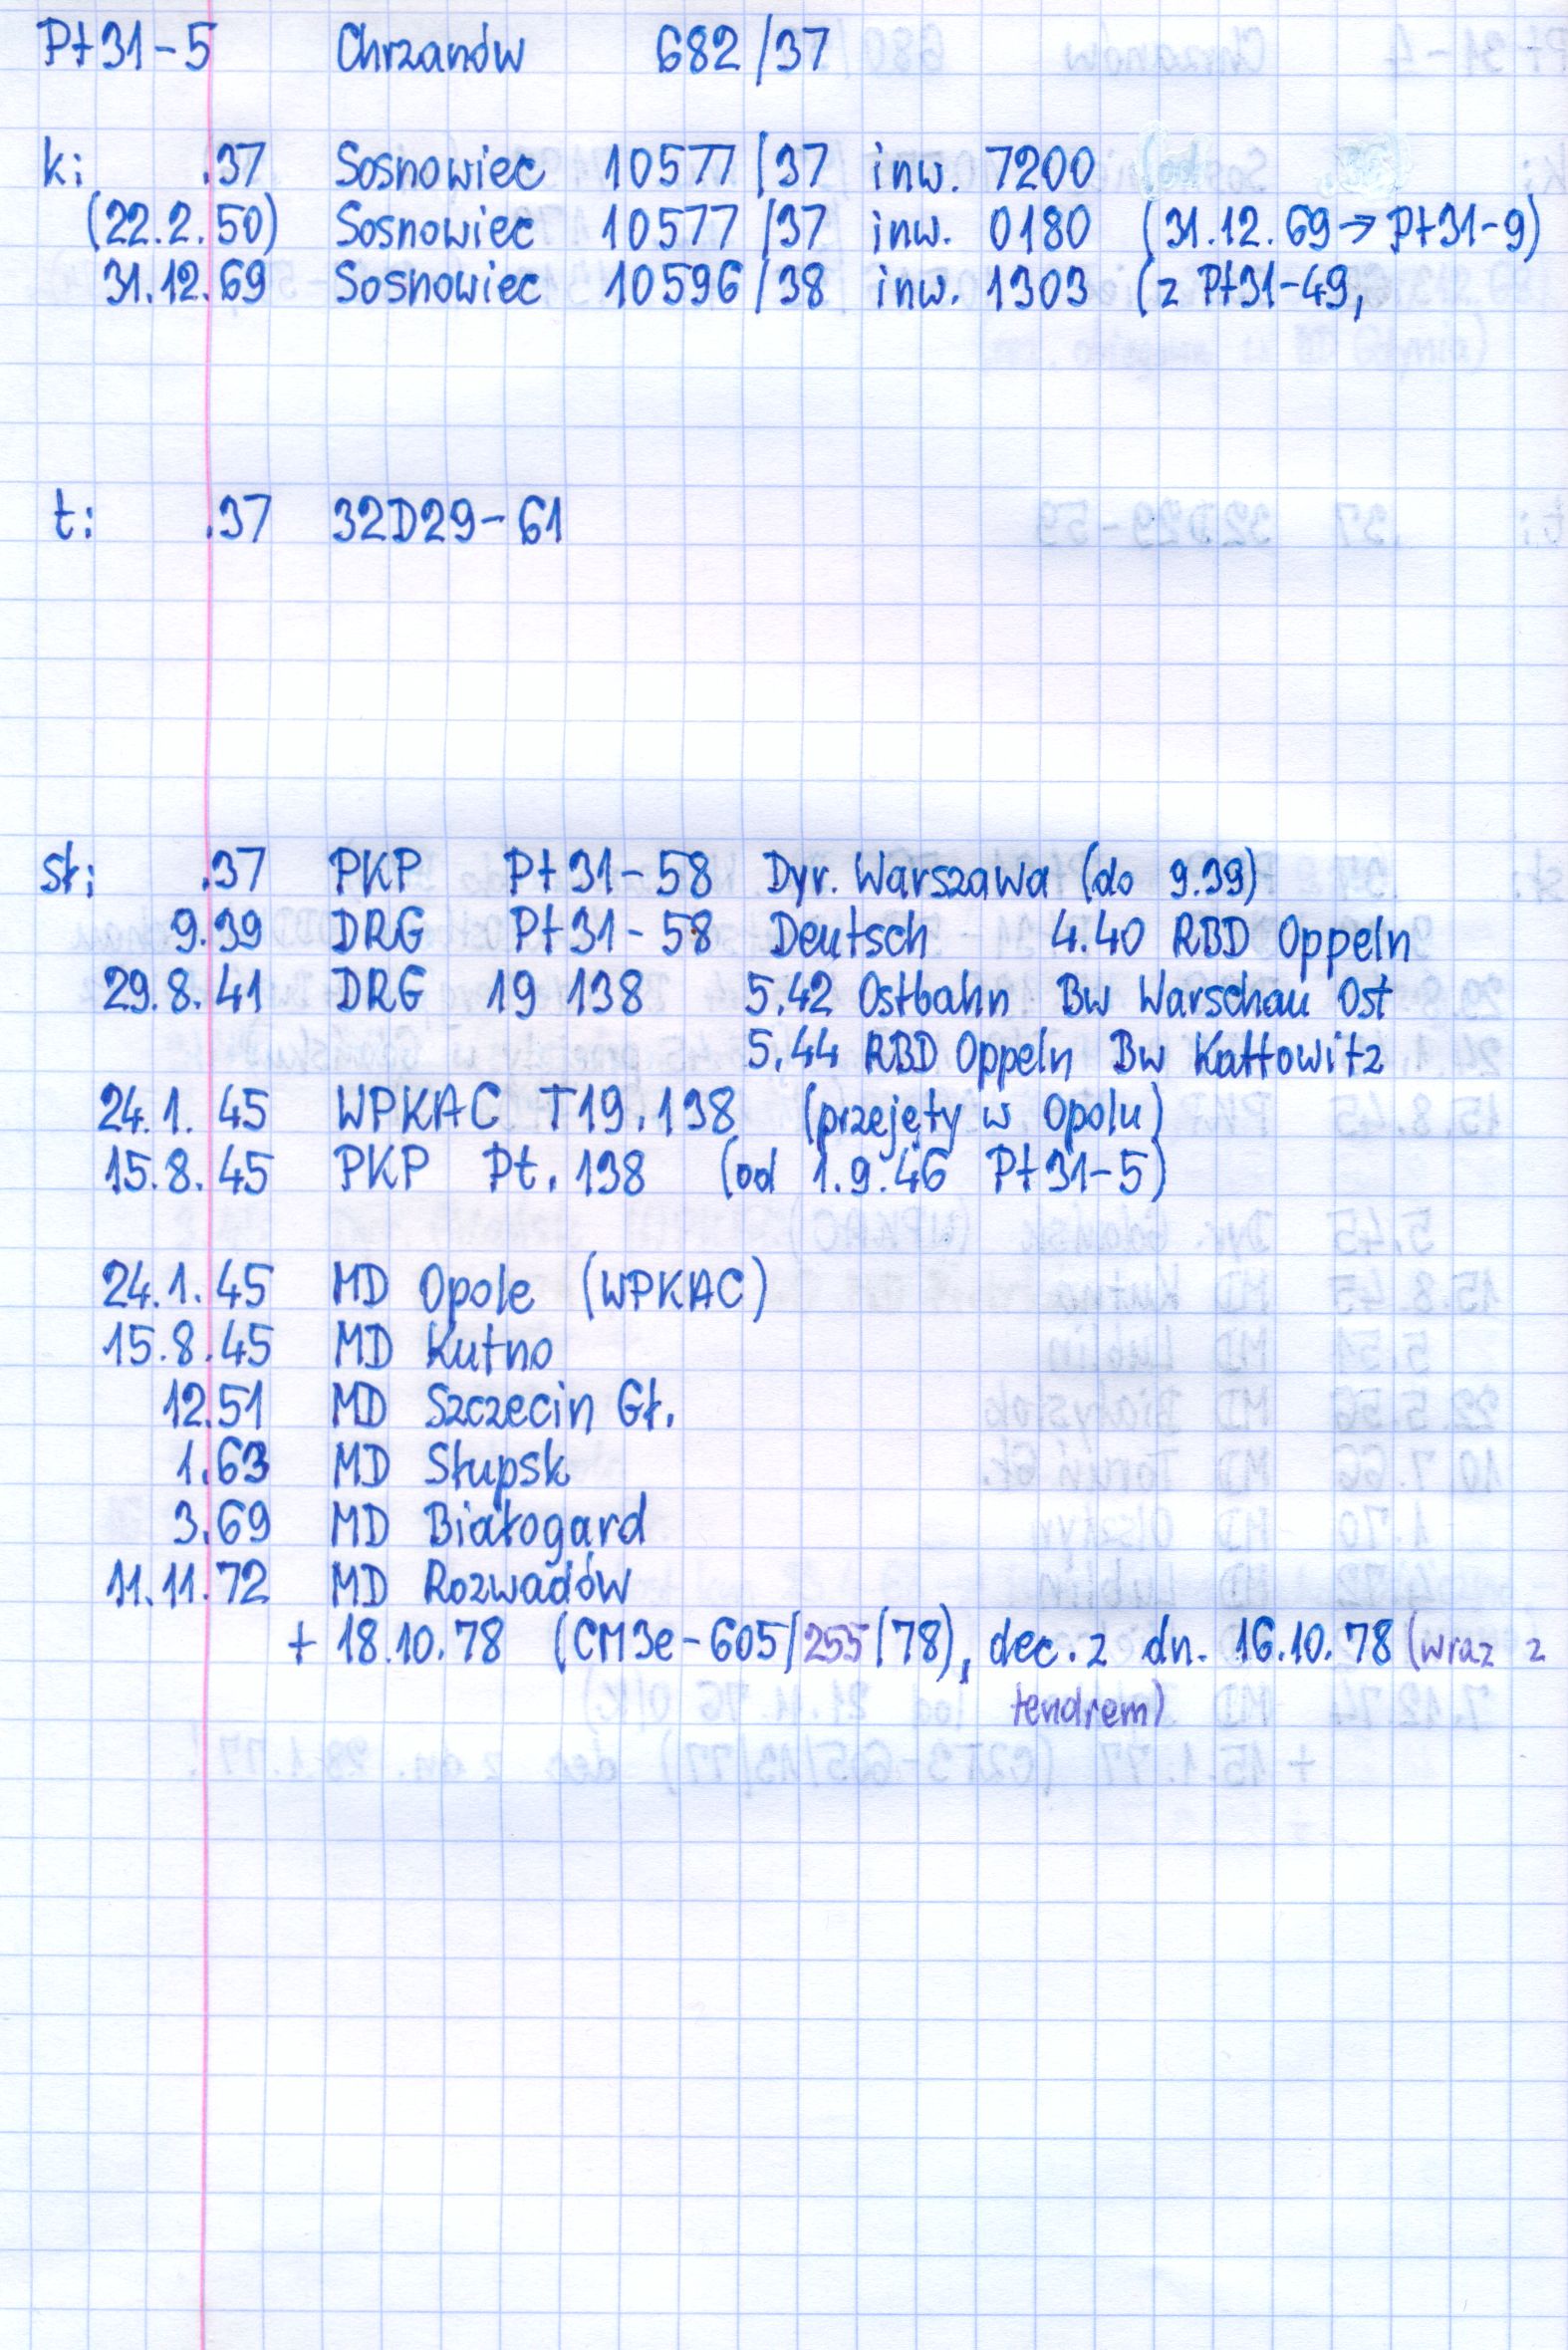 Pt31-5 Chrzanów 682/37
k: .37 Sosnowiec 10577/37 inw. 7200
(22.2.50) Sosnowiec 10577/37 inw. 0180 (31.12.69→Pt31-9)
31.12.69 Sosnowiec 10596/38 inw. 1303 (z Pt31-49,
t: .37 32D29-61
sł: .37 PKP Pt31-58 Dyr. Warszawa (do 9.39)
9.39 DRG Pt31-58 Deutsch 4.40 RBD Oppeln
29.8.41 DRG 19 138 5.42 Ostbahn Bw Warschau Ost
5.44 RBD Oppeln Bw Kattowitz
24.1.45 WPKAC T19.138 (przejęty w Opolu)
15.8.45 PKP Pt.138 (od 1.9.46 Pt31-5)
24.1.45 MD Opole (WPKAC)
15.8.45 MD Kutno
12.51 MD Szczecin Gł.
1.63 MD Słupsk
3.69 MD Białogard
11.11.72 MD Rozwadów
+ 18.10.78 (CM3e-605/255/78), dec. z dn. 16.10.78 (wraz z
tendrem)